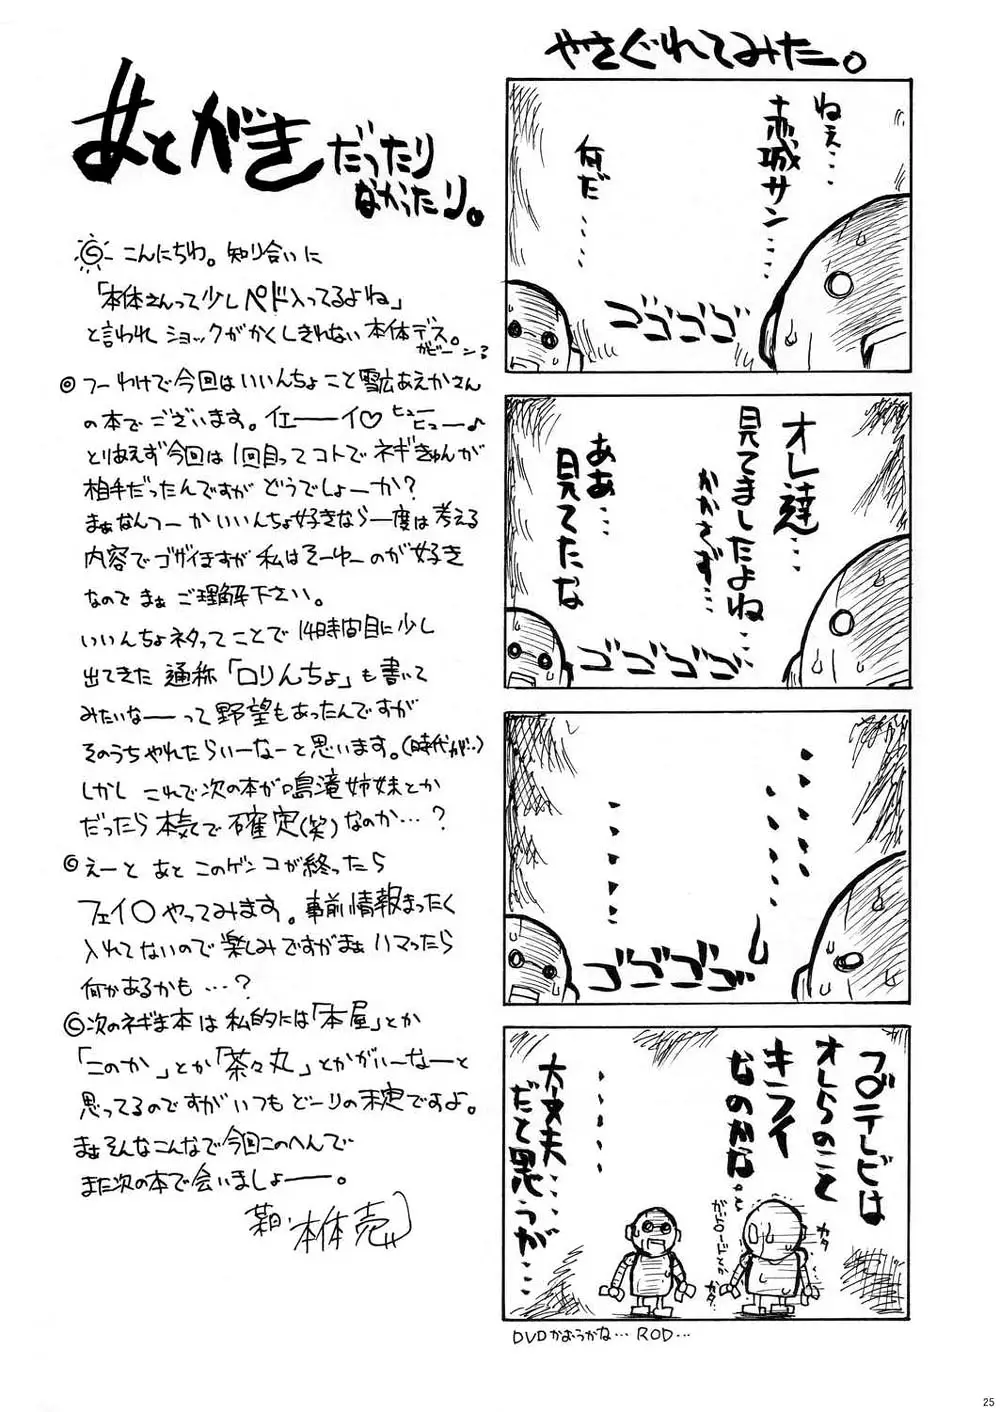 あとがきだったり
なかったり。
こんにちわ。知り合いに
「本体さんって少しペド入ってるよね」
と言われショックがかくしきれない本体デス。
ガビーン?
◎つーわけで今回はいいんちょこと雪広あえかさん
の本でございます。イエーーイ♡ヒューヒュー♪
とりあえず今回は1回目ってコトでネギきゅんが
相手だったんですがどうでしょーか?
まぁなんつーかいいんちょ好きなら一度は考える
内容でゴザイますが私はそーゆーのが好き
なのでまぁご理解下さい。
いいんちょネタってことで14時間目に少し
出てきた通称「ロりんちょ」も書いて
みたいなーーって野望もあったんですが
そのうちやれたらいーなーと思います。(時代が…)
しかしこれで次の本が鳴滝姉妹とか
だったら本気で確定(笑)なのか…?
◎えーとあとこのゲンコが終ったら
フェイ○やってみます。事前情報まったく
入れてないので楽しみですがまぁハマったら
何かあるかも…?
◎次のネギま本は私的には「本屋」とか
「このか」とか「茶々丸」とかがいーなーと
思ってるのですがいつもどーりの未定ですよ。
まぁそんなこんなで今回このへんで
また次の本で会いましょーーー。
本体売
やさぐれてみたー。
ねぇ…
赤城サン……
何だ……
ゴゴゴゴ
オレ達…
見てましたよね…
かかさず…
ああ…
見てたな
ゴゴゴゴ
ゴゴゴゴ
フ○テレビは
オレらのこと
キライ
なのかな。と
カタ
カタ
……
大丈夫……
だと思うが…
DVDかおうかな… ROD…
25